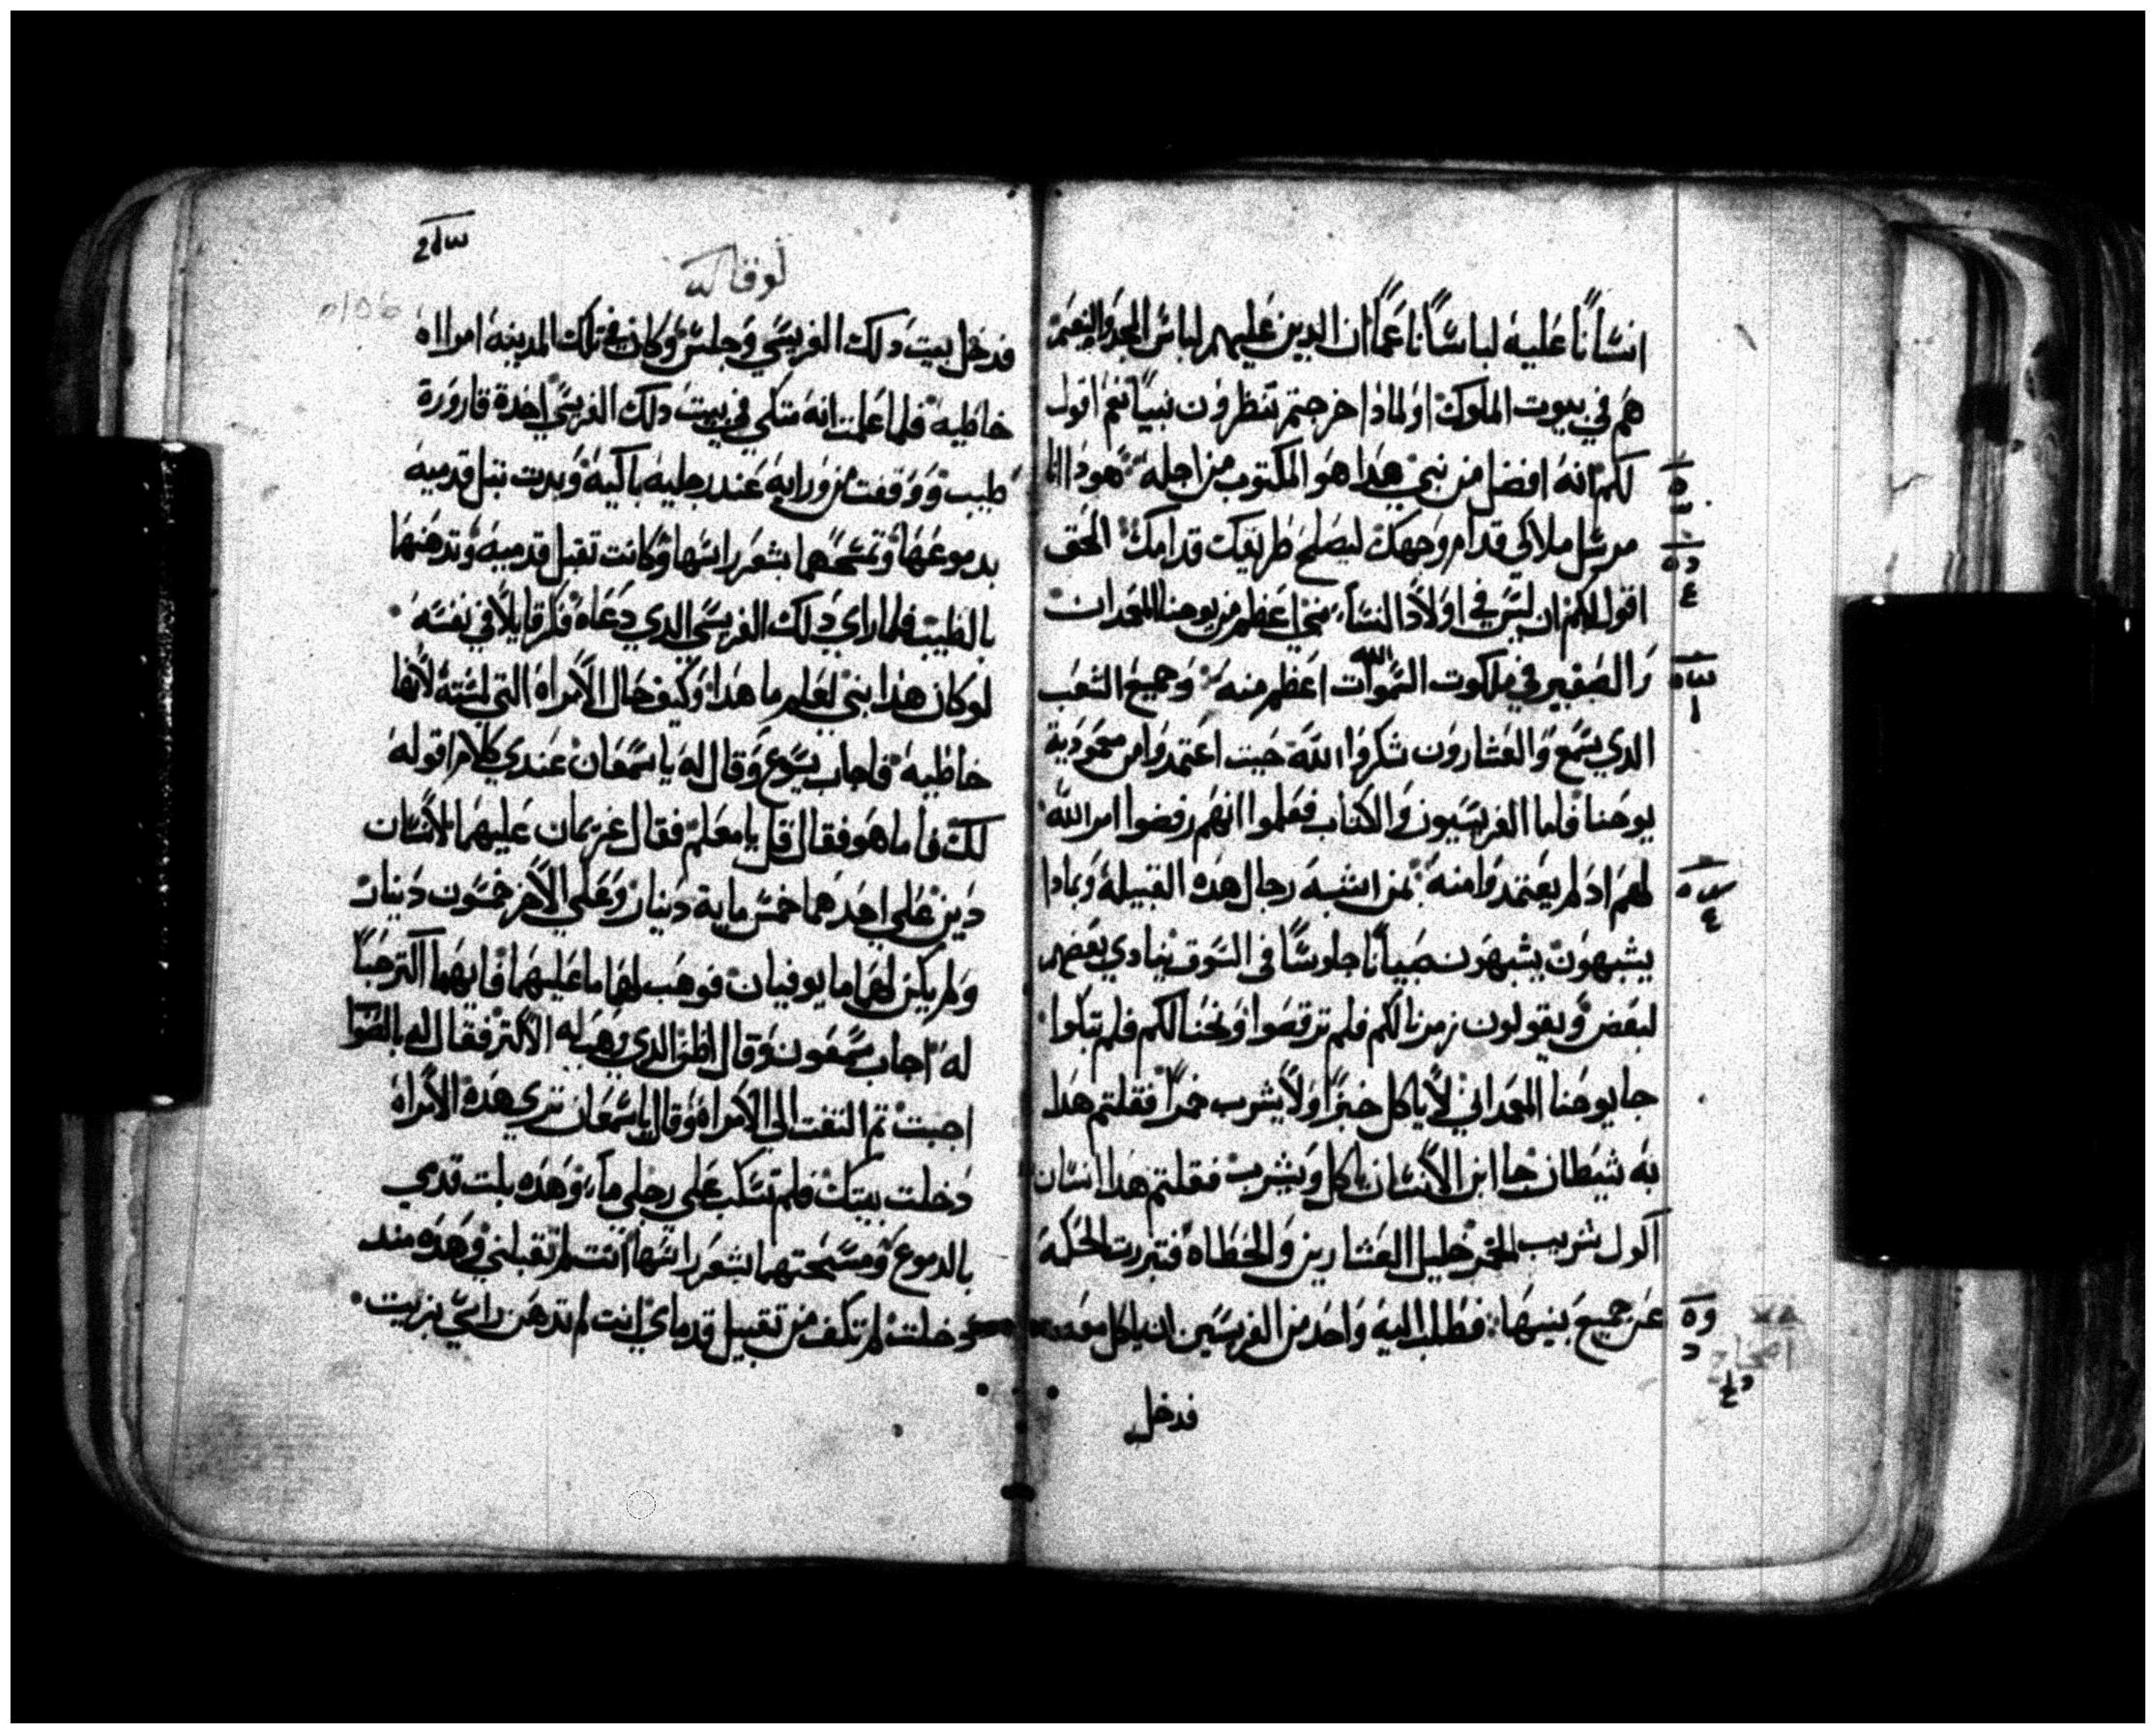 انسًانًا عليه لباسًا ناعمًا ان الدين عليهم لباس المجد والنعيم
هم في بيوت الملوك اولمادا خرجتم تنظرون نبيًا نعم اقول
لكم انه افضل من نبي هدا هو المكتوب من اجله هودا انا
مرسل ملاكي قدام وجهك ليصلح طريقك قدامك الحق
اقول لكم ان ليس في اولاد النساء نبي اعظم من يوحنا المعمدان
والصغير في ملكوت السموات اعظم منه وجميع الشعب
الدي سمع والعشارون شكروا الله حيت اعتمدوا من معمودية
يوحنا فاما الفريسيون والكتاب فعلموا انهم رفضوا امر الله
لهم اد لم يعتمدوا منه بمن اشبه رجال هده القبيله وبمادا
يشبهون يشبهون صبيانًا جلوسًا في السوق ينادي بعضهم
لبعض ويقولون زمرنا لكم فلم ترقصوا ونحنا لكم فلم تبكوا
جا يوحنا المعمداني لا ياكل خبزًا ولا يشرب خمرًا فقلتم هدا
به شيطان جا ابن الانسان ياكل ويشرب فقلتم هدا انسان
اكول شريب للخمر خليل العشارين والخطاه فتبررت الحكمه
عن جميع بنيها فطلب اليه واحد من الفريسين ان ياكل معه
فدخل
لوقا
فدخل بيت دلك الفريسي وجلس وكان في تلك المدينه امراه
خاطيه فلما علمت انه متكي في بيت دلك الفريسي اخدة قارورة
طيب ووقفت من ورايه عند رجليه باكيه وبدت تبل قدميه
بدموعها وتمسحهما بشعر راسها وكانت تقبل قدميه وتدهنهما
بالطيب فلما راي دلك الفريسي الدي دعاه فكر قايلًا في نفسه
لو كان هدا نبي لعلم ما هدا وكيف حال الامراه التي لمسته لانها
خاطيه فاجاب يسوع وقال له يا سمعان عندي كلام اقوله
لك فاما هو فقال قل يا معلم فقال غريمان عليهما لانسان
دين علي احدهما خمس ماية دينار وعلي الاخر خمسون دينار
ولم يكن لهما ما يوفيان فوهب لهما ما عليهما فايهما اكتر حبًا
له اجاب سمعون وقال اظن الدي وهب له الاكتر فقال له بالصوا
اجبت تم التفت الي الامراه وقال يا سمعان تري هده الامراه
دخلت بيتك فلم تسكب علي رجلي ماء وهده بلت قدمي
بالدموع ومسحتهما بشعر راسها انت لم تقبلني وهده مند
دخلت لم تكف من تقبيل قدماي انت لم تدهن راسي بزيت